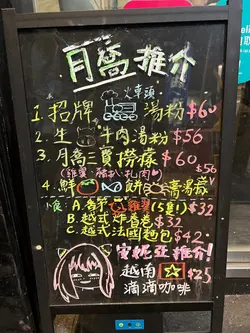 月喬推介
火車頭
1. 招牌 湯粉 $60
2. 生 牛肉湯粉 $56
3. 月喬三寶撈檬 $60
(雞翼、豬扒、扎肉)
$56
4. 鮮 餅 湯檬
小食: A. 香茅 雞翼 (5隻) $32
B. 越式炸春卷 $32
C. 越式法國麵包 $42
安妮亞推介!
越南 $25
滴滴咖啡